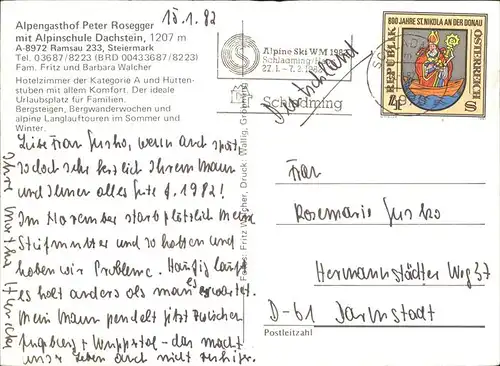 15.1.82
Alpengasthof Peter Rosegger
mit Alpinschule Dachstein, 1207 m
A-8972 Ramsau 233, Steiermark
Tel. 03687/8223 (BRD 00433687/8223)
Fam. Fritz und Barbara Walcher
Hotelzimmer der Kategorie A und Hütten-
stuben mit allem Komfort. Der ideale
Urlaubsplatz für Familien.
Bergsteigen, Bergwanderwochen und
alpine Langlauftouren im Sommer und
Winter.
Liebe Frau Susko, wenn auch spät,
so doch sehr herzlich Ihrem Mann
und Ihnen alles Gute f. 1982!
Im November starb plötzlich meine
Stiefmutter und so hatten und
haben wir Probleme. Häufig läuft
es halt anders als man es erwartet.
Mein Mann pendelt jetzt zwischen
Augsburg + Wuppertal - das macht
unser Leben auch nicht ruhiger.
Ihre Martha
Alpine Ski WM 1982
Schladming
Schladming
Deutschland
800 JAHRE ST. NIKOLA AN DER DONAU
REPUBLIK
ÖSTERREICH
S
Frau
Rosemarie Susko
Hermannstädter Weg 37
D-61 Darmstadt
Postleitzahl